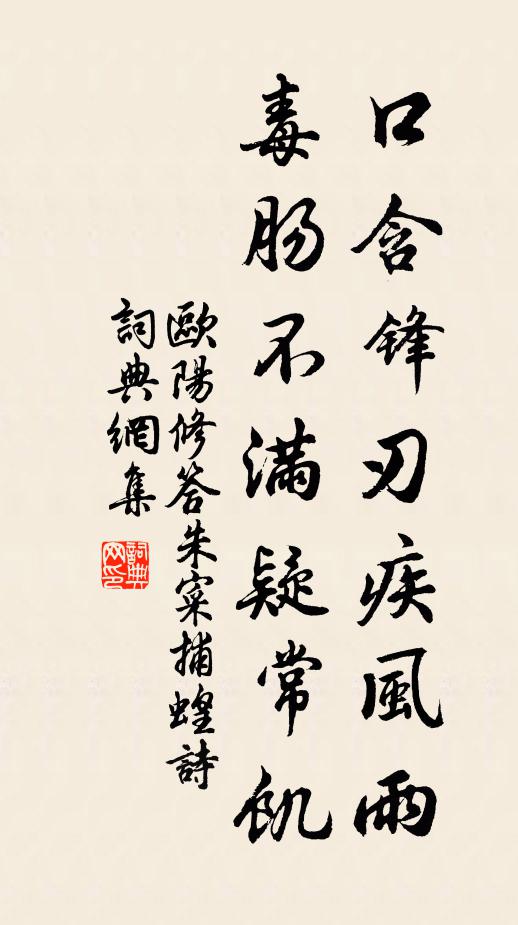 口含鋒刃疾風雨
毒腸不滿疑常飢
歐陽修答朱寀捕蝗詩
詞典網集
詞典網印